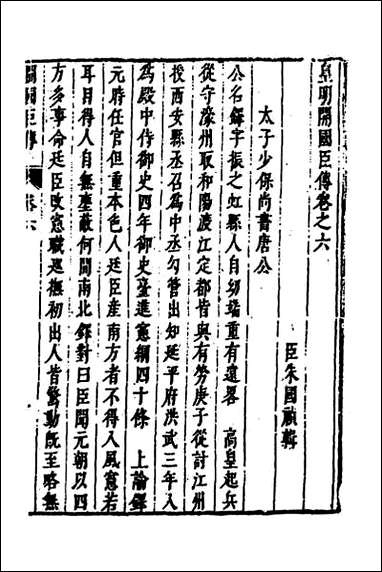 皇明開國臣傳卷之六
臣朱國禎輯
太子少保尚書唐公
公名鐸字振之虹縣人自幼端重有遠畧　高皇起兵
從守濠州取和陽渡江定都皆與有勞庚子從討江州
授西安縣丞召為中丞勾管出知延平府洪武三年入
為殿中侍御史四年御史臺進憲綱四十條　上諭鐸
元時任官但重本色人廷臣產南方者不得入風憲若
耳目得人自無壅蔽何間南北鐸對曰臣聞元朝以四
方多事命廷臣改憲職巡撫初出人皆驚動既至略無
開國臣傳　卷六